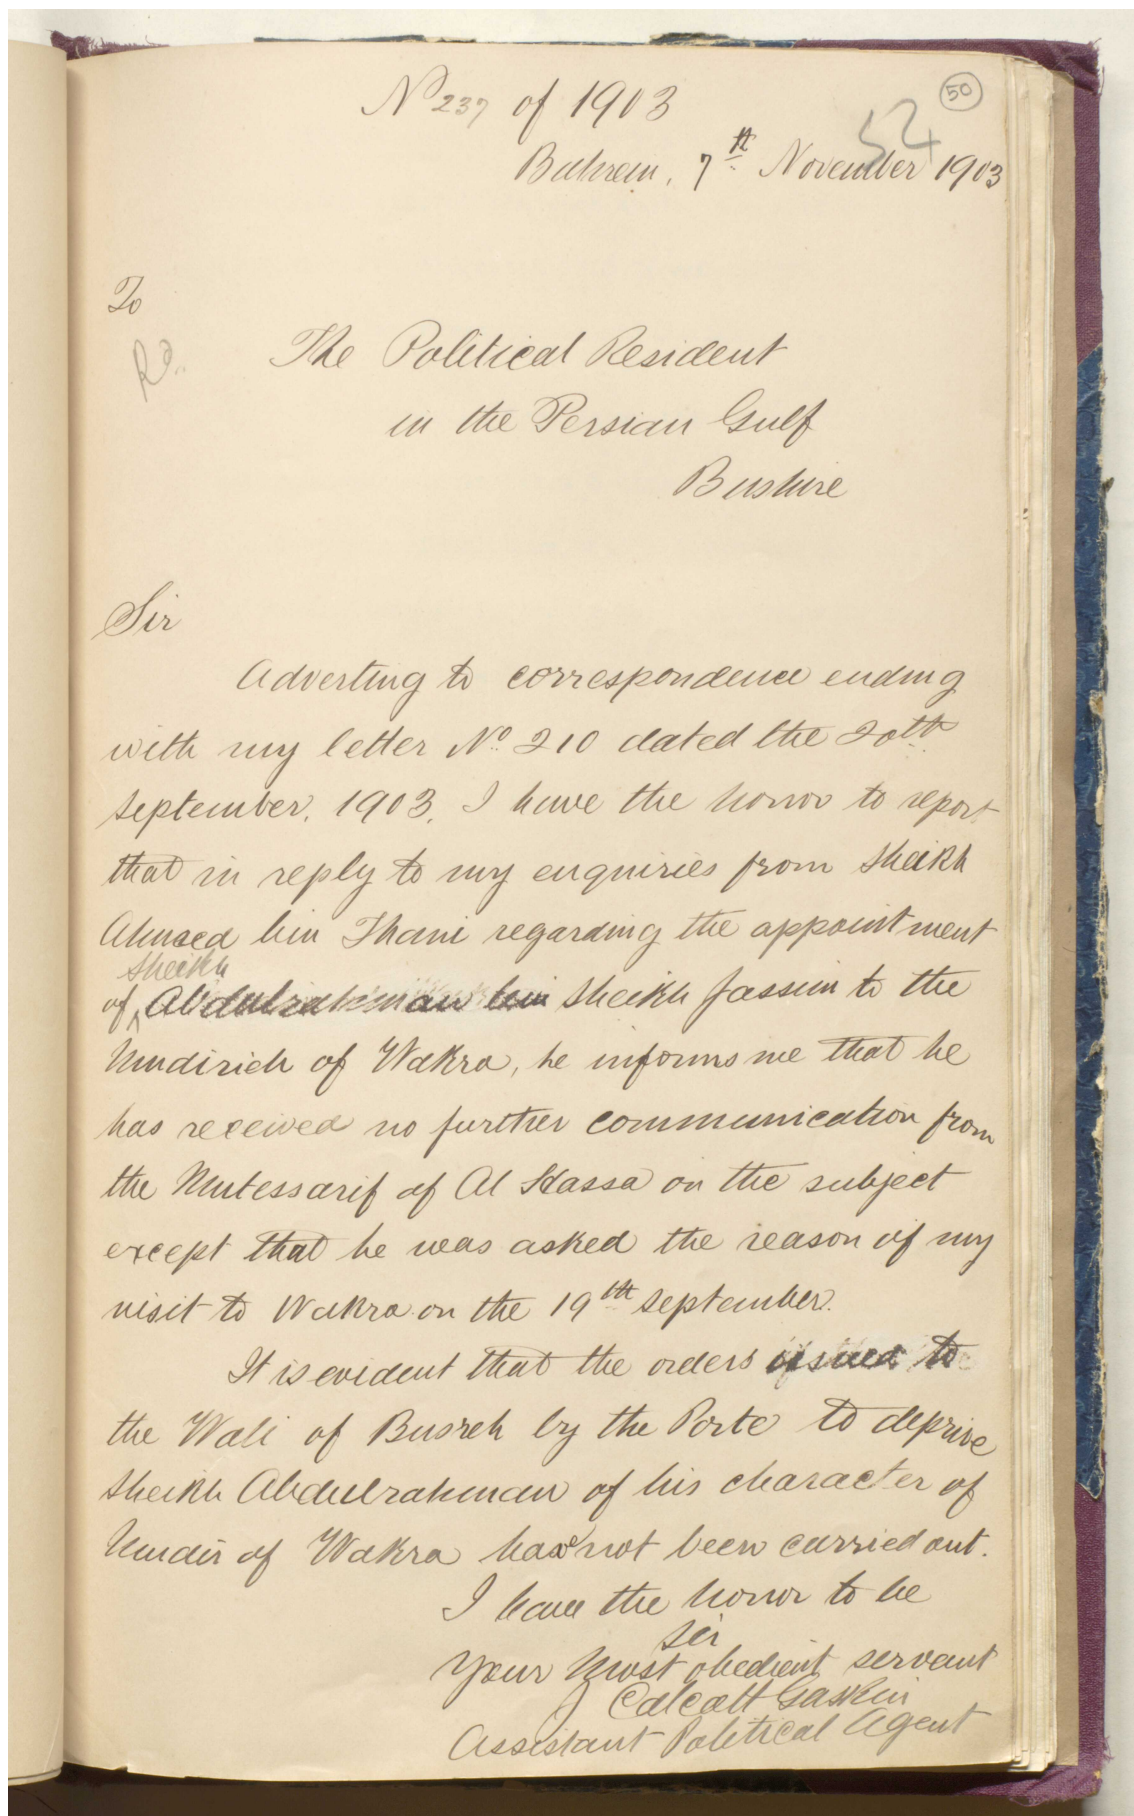 50
No 237 of 1903
52
Bahrein, 7th November 1903
To
The Political Resident
in the Persian Gulf
Bushire
Sir
Adverting to correspondence ending
with my letter No 210 dated the 20th
September, 1903, I have the honor to report
that in reply to my enquiries from Sheikh
Ahmed bin Thani regarding the appointment
Sheikh
of Abdulrahman bin Sheikh Jassim to the
Mudirieh of Wakra, he informs me that he
has received no further communication from
the Mutessarif of Al Hassa on the subject
except that he was asked the reason of my
visit to Wakra on the 19th September.
It is evident that the orders issued to
the Wali of Busreh by the Porte to deprive
Sheikh Abdulrahman of his character of
Mudir of Wakra have not been carried out.
I have the honor to be
Sir
Your most obedient servant
J Calcott Gaskin
Assistant Political Agent